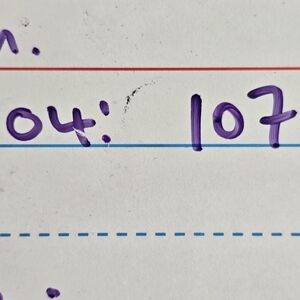 n.
04: 107